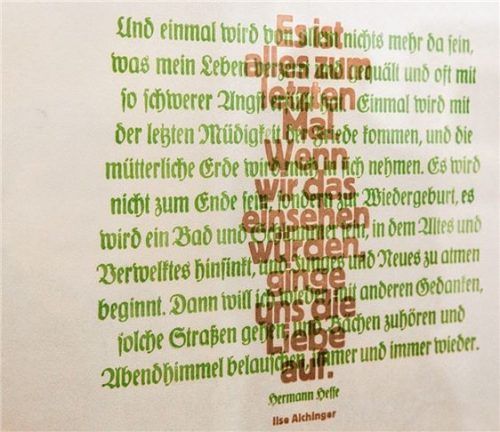 Und einmal wird von allem nichts mehr da sein,
was mein Leben und gequält und oft mit
so schwerer Angst erfüllt hat. Einmal wird mit
der letzten Müdigkeit der Friede kommen, und die
mütterliche Erde wird mich in sich nehmen. Es wird
nicht zum Ende sein, sondern zur Wiedergeburt, es
wird ein Bad und Schlummer sein, in dem Altes und
Verwelktes hinsinkt, und Junges und Neues zu atmen
beginnt. Dann will ich wieder mit anderen Gedanken,
solche Straßen gehen und Bächen zuhören und
Abendhimmel belauschen, immer und immer wieder.
Hermann Hesse
Es ist
alles zum
letzten
Mal.
Wenn
wir das
einsehen
würden,
ginge
uns die
Liebe
auf.
Ilse Aichinger